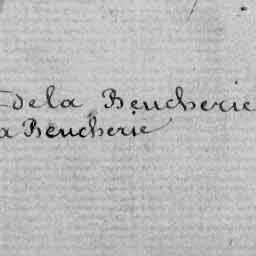 de la Beucherie
a Beucherie